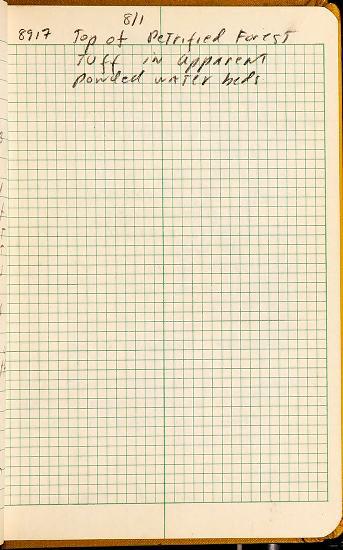 8/1
8917 Top of Petrified Forest
Tuff in apparent
ponded water beds